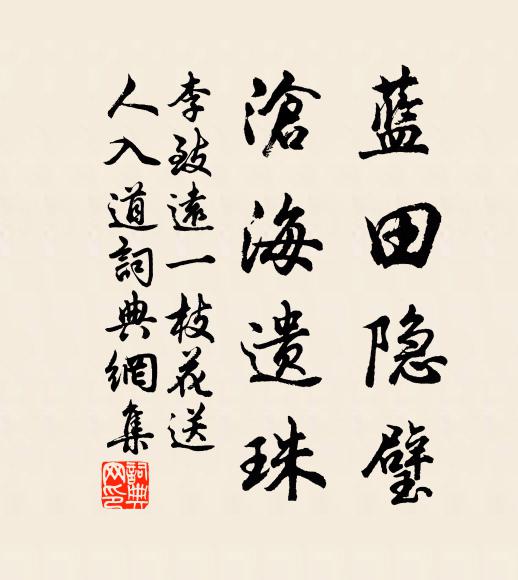 藍田隐璧
滄海遗珠
李致遠一枝花送
人入道詞典網集
詞典網印